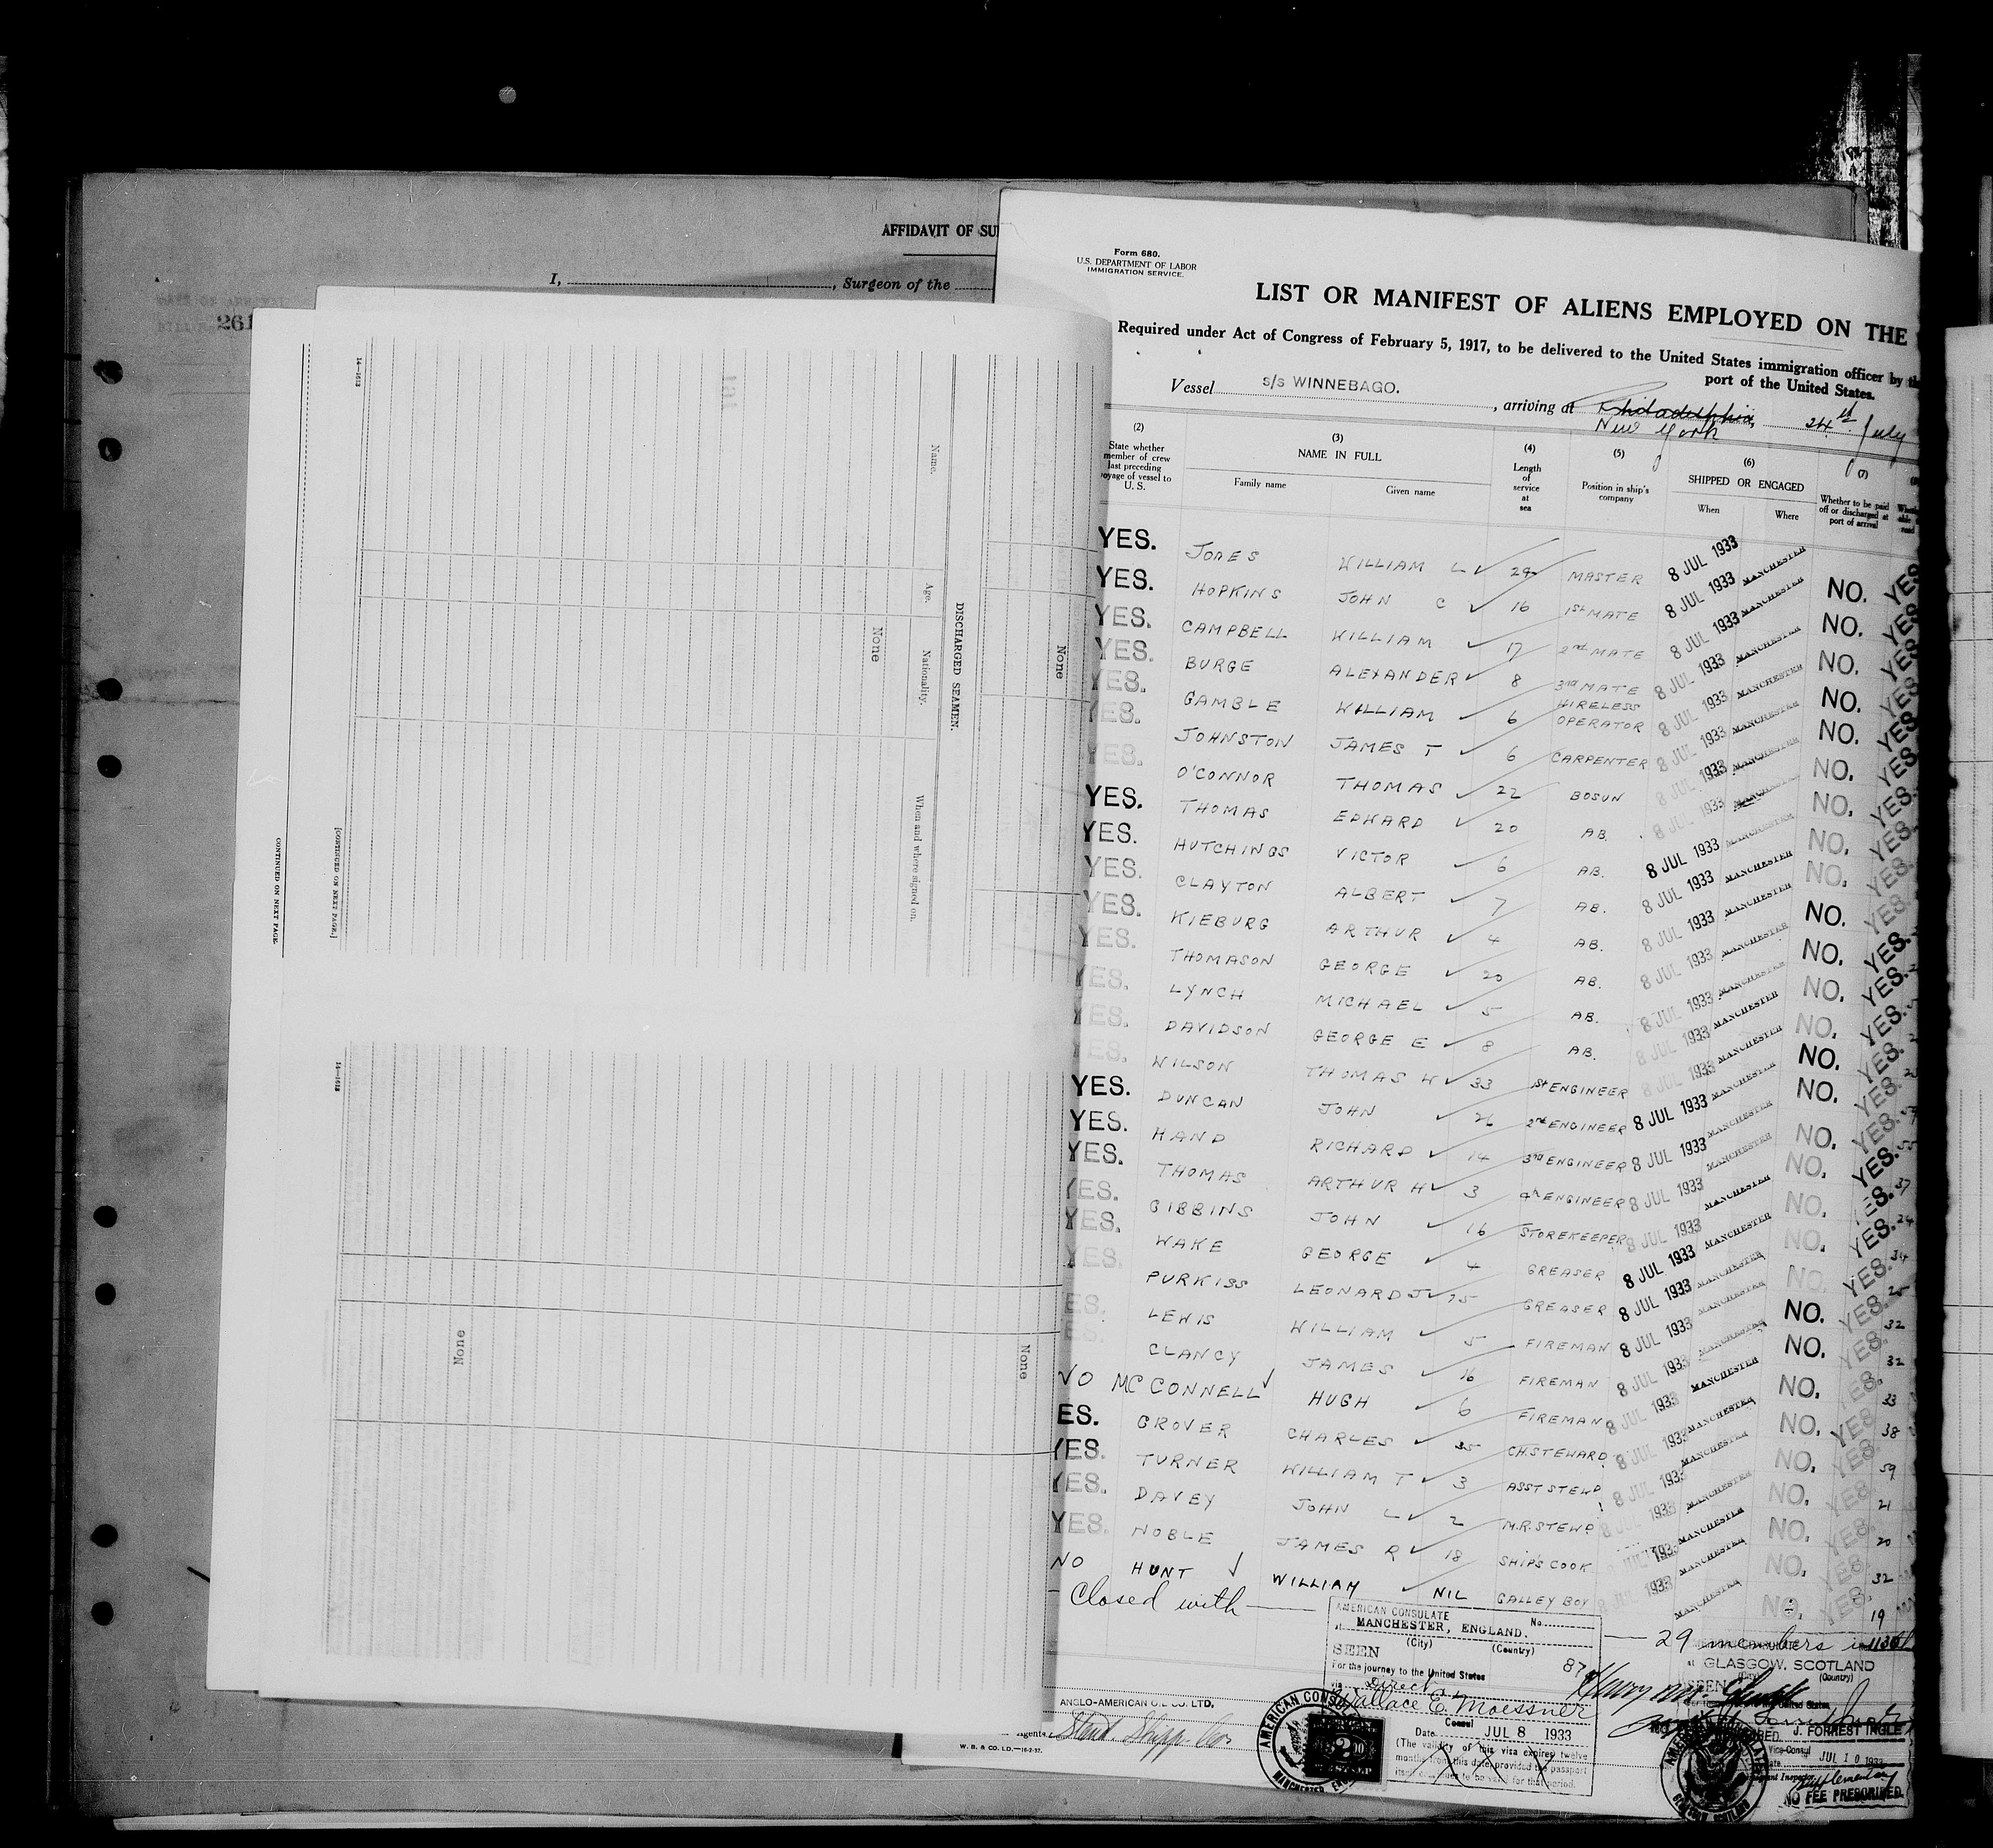 AFFIDAVIT OF SU
I, , Surgeon of the
261
Form 680.
U.S. DEPARTMENT OF LABOR
IMMIGRATION SERVICE.
LIST OR MANIFEST OF ALIENS EMPLOYED ON THE
Required under Act of Congress of February 5, 1917, to be delivered to the United States immigration officer by
port of the United States.
Vessel s/s WINNEBAGO. , arriving at Philadelphia, 24th July
New York
(2) State whether member of crew last preceding voyage of vessel to U. S.
(3) NAME IN FULL
Family name Given name
(4) Length of service at sea
(5) Position in ship's company
(6) SHIPPED OR ENGAGED
When Where
(7) Whether to be paid off or discharged at port of arrival
YES. JONES WILLIAM L 29 MASTER 8 JUL 1933 MANCHESTER NO. YES
YES. HOPKINS JOHN C 16 1ST MATE 8 JUL 1933 MANCHESTER NO. YES
YES. CAMPBELL WILLIAM 17 2nd MATE 8 JUL 1933 MANCHESTER NO. YES
YES. BURGE ALEXANDER 8 3rd MATE 8 JUL 1933 MANCHESTER NO. YES
YES. GAMBLE WILLIAM 6 WIRELESS OPERATOR 8 JUL 1933 MANCHESTER NO. YES
YES. JOHNSTON JAMES T 6 CARPENTER 8 JUL 1933 MANCHESTER NO. YES
YES. O'CONNOR THOMAS 22 BOSUN 8 JUL 1933 MANCHESTER NO. YES.
YES. THOMAS EDWARD 20 AB. 8 JUL 1933 MANCHESTER NO. YES.
YES. HUTCHINGS VICTOR 6 AB. 8 JUL 1933 MANCHESTER NO. YES.
YES. CLAYTON ALBERT 7 AB. 8 JUL 1933 MANCHESTER NO. YES.
YES. KIEBURG ARTHUR 4 AB. 8 JUL 1933 MANCHESTER NO. YES.
YES. THOMASON GEORGE 20 AB. 8 JUL 1933 MANCHESTER NO. YES.
YES. LYNCH MICHAEL 5 AB. 8 JUL 1933 MANCHESTER NO. YES.
YES. DAVIDSON GEORGE E 8 AB. 8 JUL 1933 MANCHESTER NO. YES.
YES. WILSON THOMAS W 33 1st ENGINEER 8 JUL 1933 MANCHESTER NO. YES.
YES. DUNCAN JOHN 26 2nd ENGINEER 8 JUL 1933 MANCHESTER NO. YES.
YES. HAND RICHARD 14 3rd ENGINEER 8 JUL 1933 MANCHESTER NO. YES.
YES. THOMAS ARTHUR H 3 4th ENGINEER 8 JUL 1933 MANCHESTER NO. YES.
YES. GIBBINS JOHN 16 STOREKEEPER 8 JUL 1933 MANCHESTER NO. YES.
YES. WAKE GEORGE 4 GREASER 8 JUL 1933 MANCHESTER NO. YES.
YES. PURKISS LEONARD J 15 GREASER 8 JUL 1933 MANCHESTER NO. YES.
ES. LEWIS WILLIAM 5 FIREMAN 8 JUL 1933 MANCHESTER NO. YES. 32
ES. CLANCY JAMES 16 FIREMAN 8 JUL 1933 MANCHESTER NO. YES. 33
NO MC CONNELL HUGH 6 FIREMAN 8 JUL 1933 MANCHESTER NO. YES. 38
ES. GROVER CHARLES 35 CH.STEWARD 8 JUL 1933 MANCHESTER NO. YES. 59
YES. TURNER WILLIAM T 3 ASST STEWD 8 JUL 193 MANCHESTER NO. YES. 21
YES. DAVEY JOHN L 2 M.R.STEWD 8 JUL 1933 MANCHESTER NO. YES. 20
YES. NOBLE JAMES R 18 SHIP'S COOK JUL 193 MANCHESTER NO. YES. 32
NO HUNT WILLIAM NIL GALLEY BOY 8 JUL 1933 MANCHESTER NO. YES. 19
Closed with 29 members in
AMERICAN CONSULATE
at MANCHESTER, ENGLAND. No.
(City) (Country)
SEEN 87
For the journey to the United States
Direct
Wallace E. Moessner
Consul
Date JUL 8 1933
(The validity of this visa expires twelve
months from this date, provided the passport
itself continues to be valid for that period.
at GLASGOW, SCOTLAND
(City) (Country)
SEEN
J. FORREST INGLE
Vice-Consul
JUL 10 1933
Supplementary
NO FEE PRESCRIBED.
ANGLO-AMERICAN OIL CO. LTD.
Agents. Stand. Shipp. Co.
W. B. & CO. LD.—16-2-32.
AMERICAN CONSULATE
MANCHESTER
DISCHARGED SEAMEN.
Name. Age. Nationality. When and where signed on.
None
None
None
None
14—1613
14—1613
[CONTINUED ON NEXT PAGE.]
CONTINUED ON NEXT PAGE.